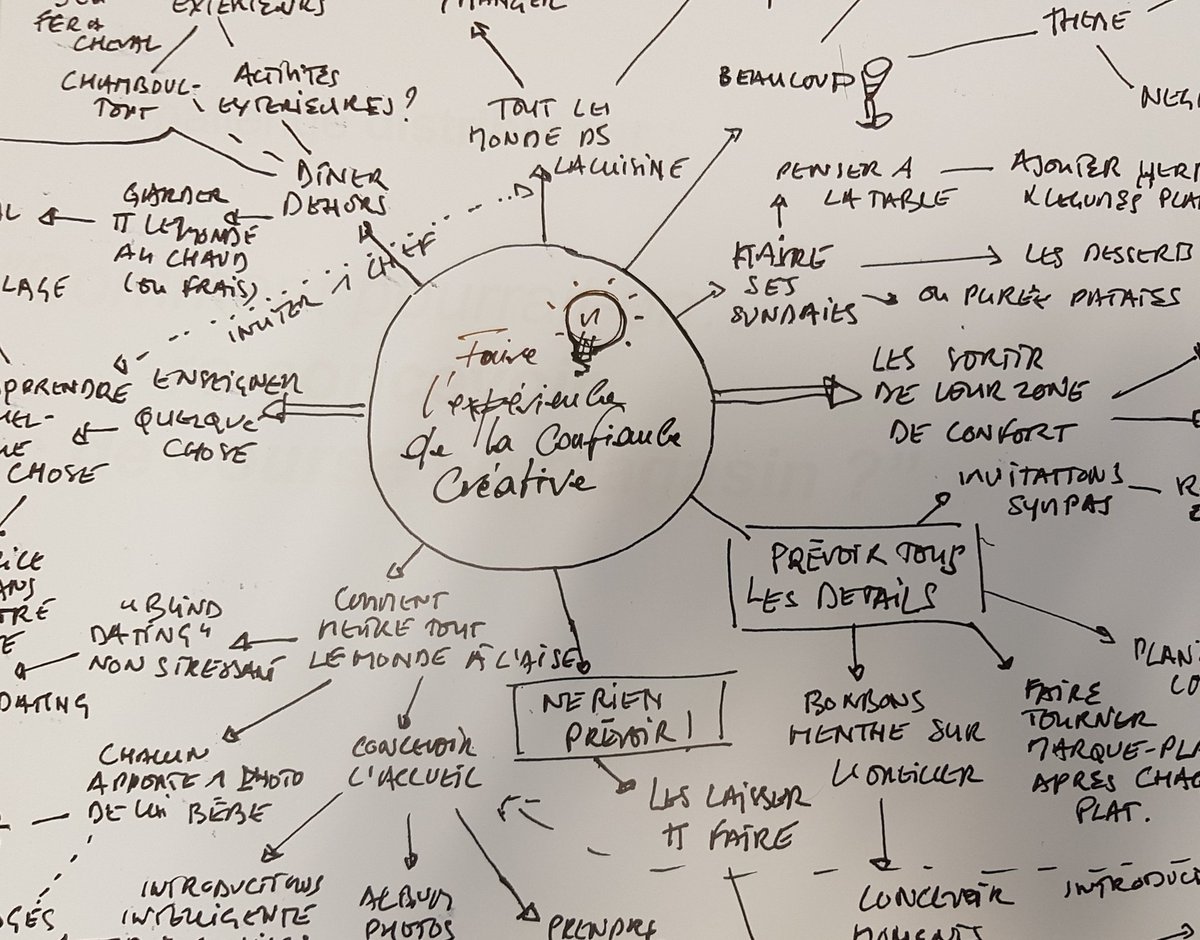 FER À
CHEVAL
EXTÉRIEURS
CHAMBOUL-
TOUT
ACTIVITÉS
EXTERIEURES ?
DÎNER
DEHORS
GARDER
TT LE MONDE
AU CHAUD
(OU FRAIS)
LAGE
TOUT LE
MONDE DS
LA CUISINE
INVITER 1 CHEF
BEAUCOUP
THEME
PENSER A
LA TABLE
AJOUTER
& LEGUMES
FAIRE
SES
SUNDAIES
LES DESSERTS
OU PURÉE PATATES
Faire
l'expérience
de la Confiance
Créative
ENSEIGNER
QUELQUE
CHOSE
PPRENDRE
CHOSE
LES SORTIR
DE LEUR ZONE
DE CONFORT
INVITATIONS
SYMPAS
PRÉVOIR TOUS
LES DETAILS
BONBONS
MENTHE SUR
L'OREILLER
CONCEVOIR
MOMENTS
FAIRE
TOURNER
MARQUE-PLA
APRÈS CHAQ
PLAT.
INTRODUCT
COMMENT
METTRE TOUT
LE MONDE À L'AISE
"BLIND
DATING"
NON STRESSANT
DATING
CHACUN
APPORTE 1 PHOTO
DE LUI BÉBÉ
CONCEVOIR
L'ACCUEIL
INTRODUCTIONS
INTELLIGENTE
ALBUM
PHOTOS
PRENDRE
NE RIEN
PRÉVOIR !
LES LAISSER
TT FAIRE